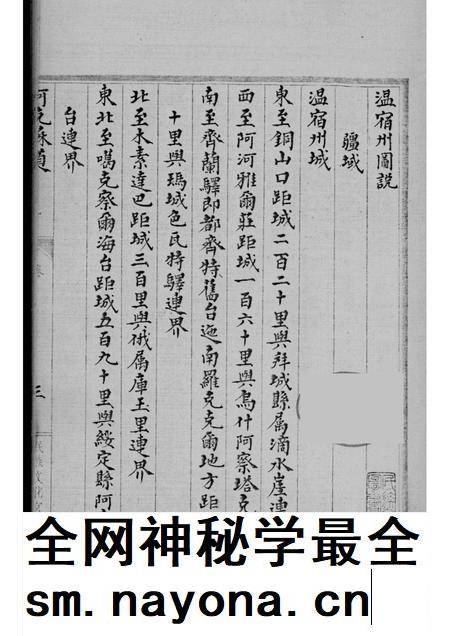 温宿州圖説
疆域
温宿州城
東至銅山口距城二百二十里與拜城縣属滴水崖連
西至阿河雅爾莊距城一百六十里與烏什阿察塔克
南至齊蘭驛即都齊特舊台迤南羅克克爾地方距
十里與瑪城色瓦特驛連界
北至木素達巴距城三百里與俄属庫玉里連界
東北至噶克察爾海台距城五百九十里與綏定縣阿
台連界
三
全网神秘学最全
sm.nayona.cn